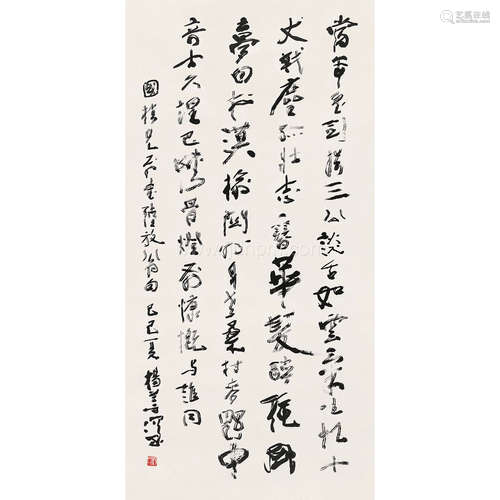 當年書劍揖三公談舌如雲氣吐虹十
丈戰塵孤壯志一簪華髮醉秋風
夢回松漠榆關外身老桑村麥野中
奇士久埋巴硤骨燈前慷慨與誰同
國楨兄屬書陸放翁句 己巳夏 楊善深
艺狐在线